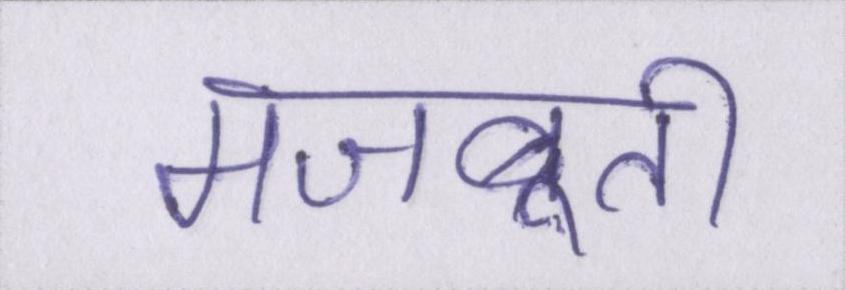 मजबूती